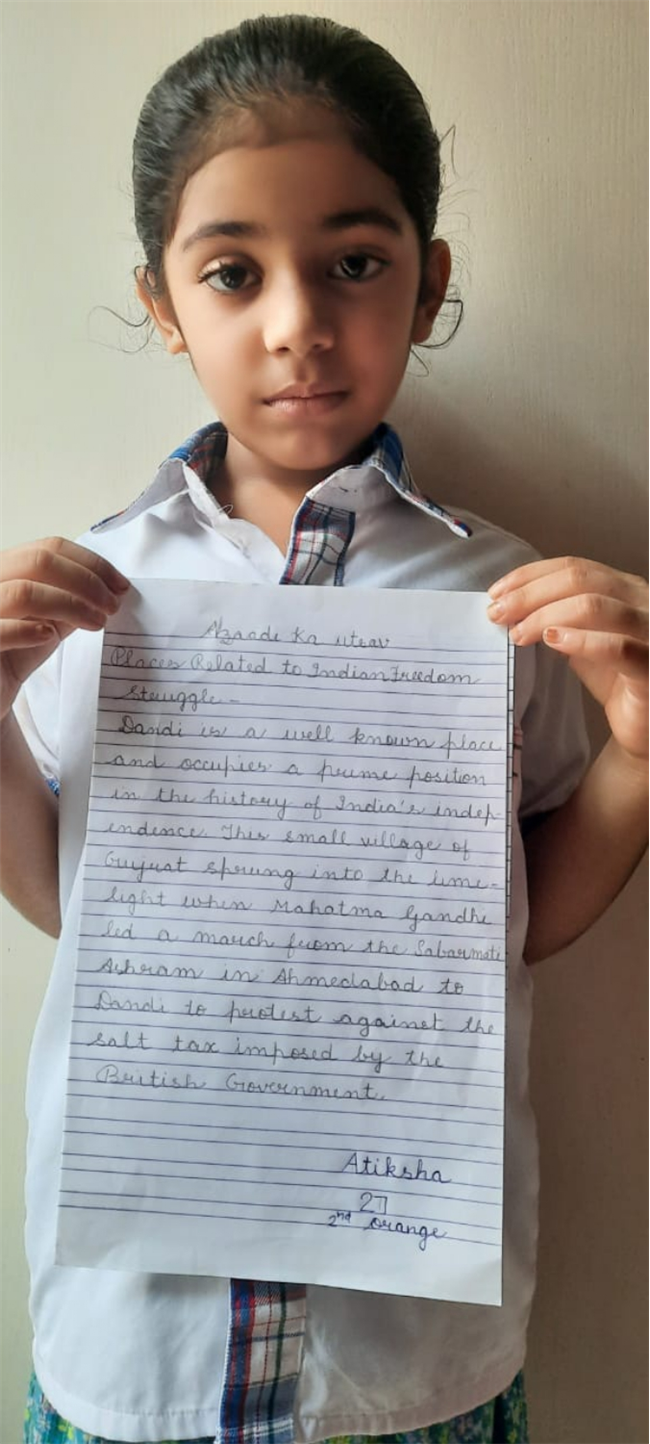 Azaade Ka utsav
Places Related to Indian Freedom
Struggle -
Dandi is a well known place
and occupies a prime position
in the history of India's indep-
endence. This small village of
Gujrat sprung into the lime-
light when Mahatma Gandhi
led a march from the Sabarmati
Ashram in Ahmedabad to
Dandi to protest against the
salt tax imposed by the
British Government.
Atiksha
27
2nd Orange